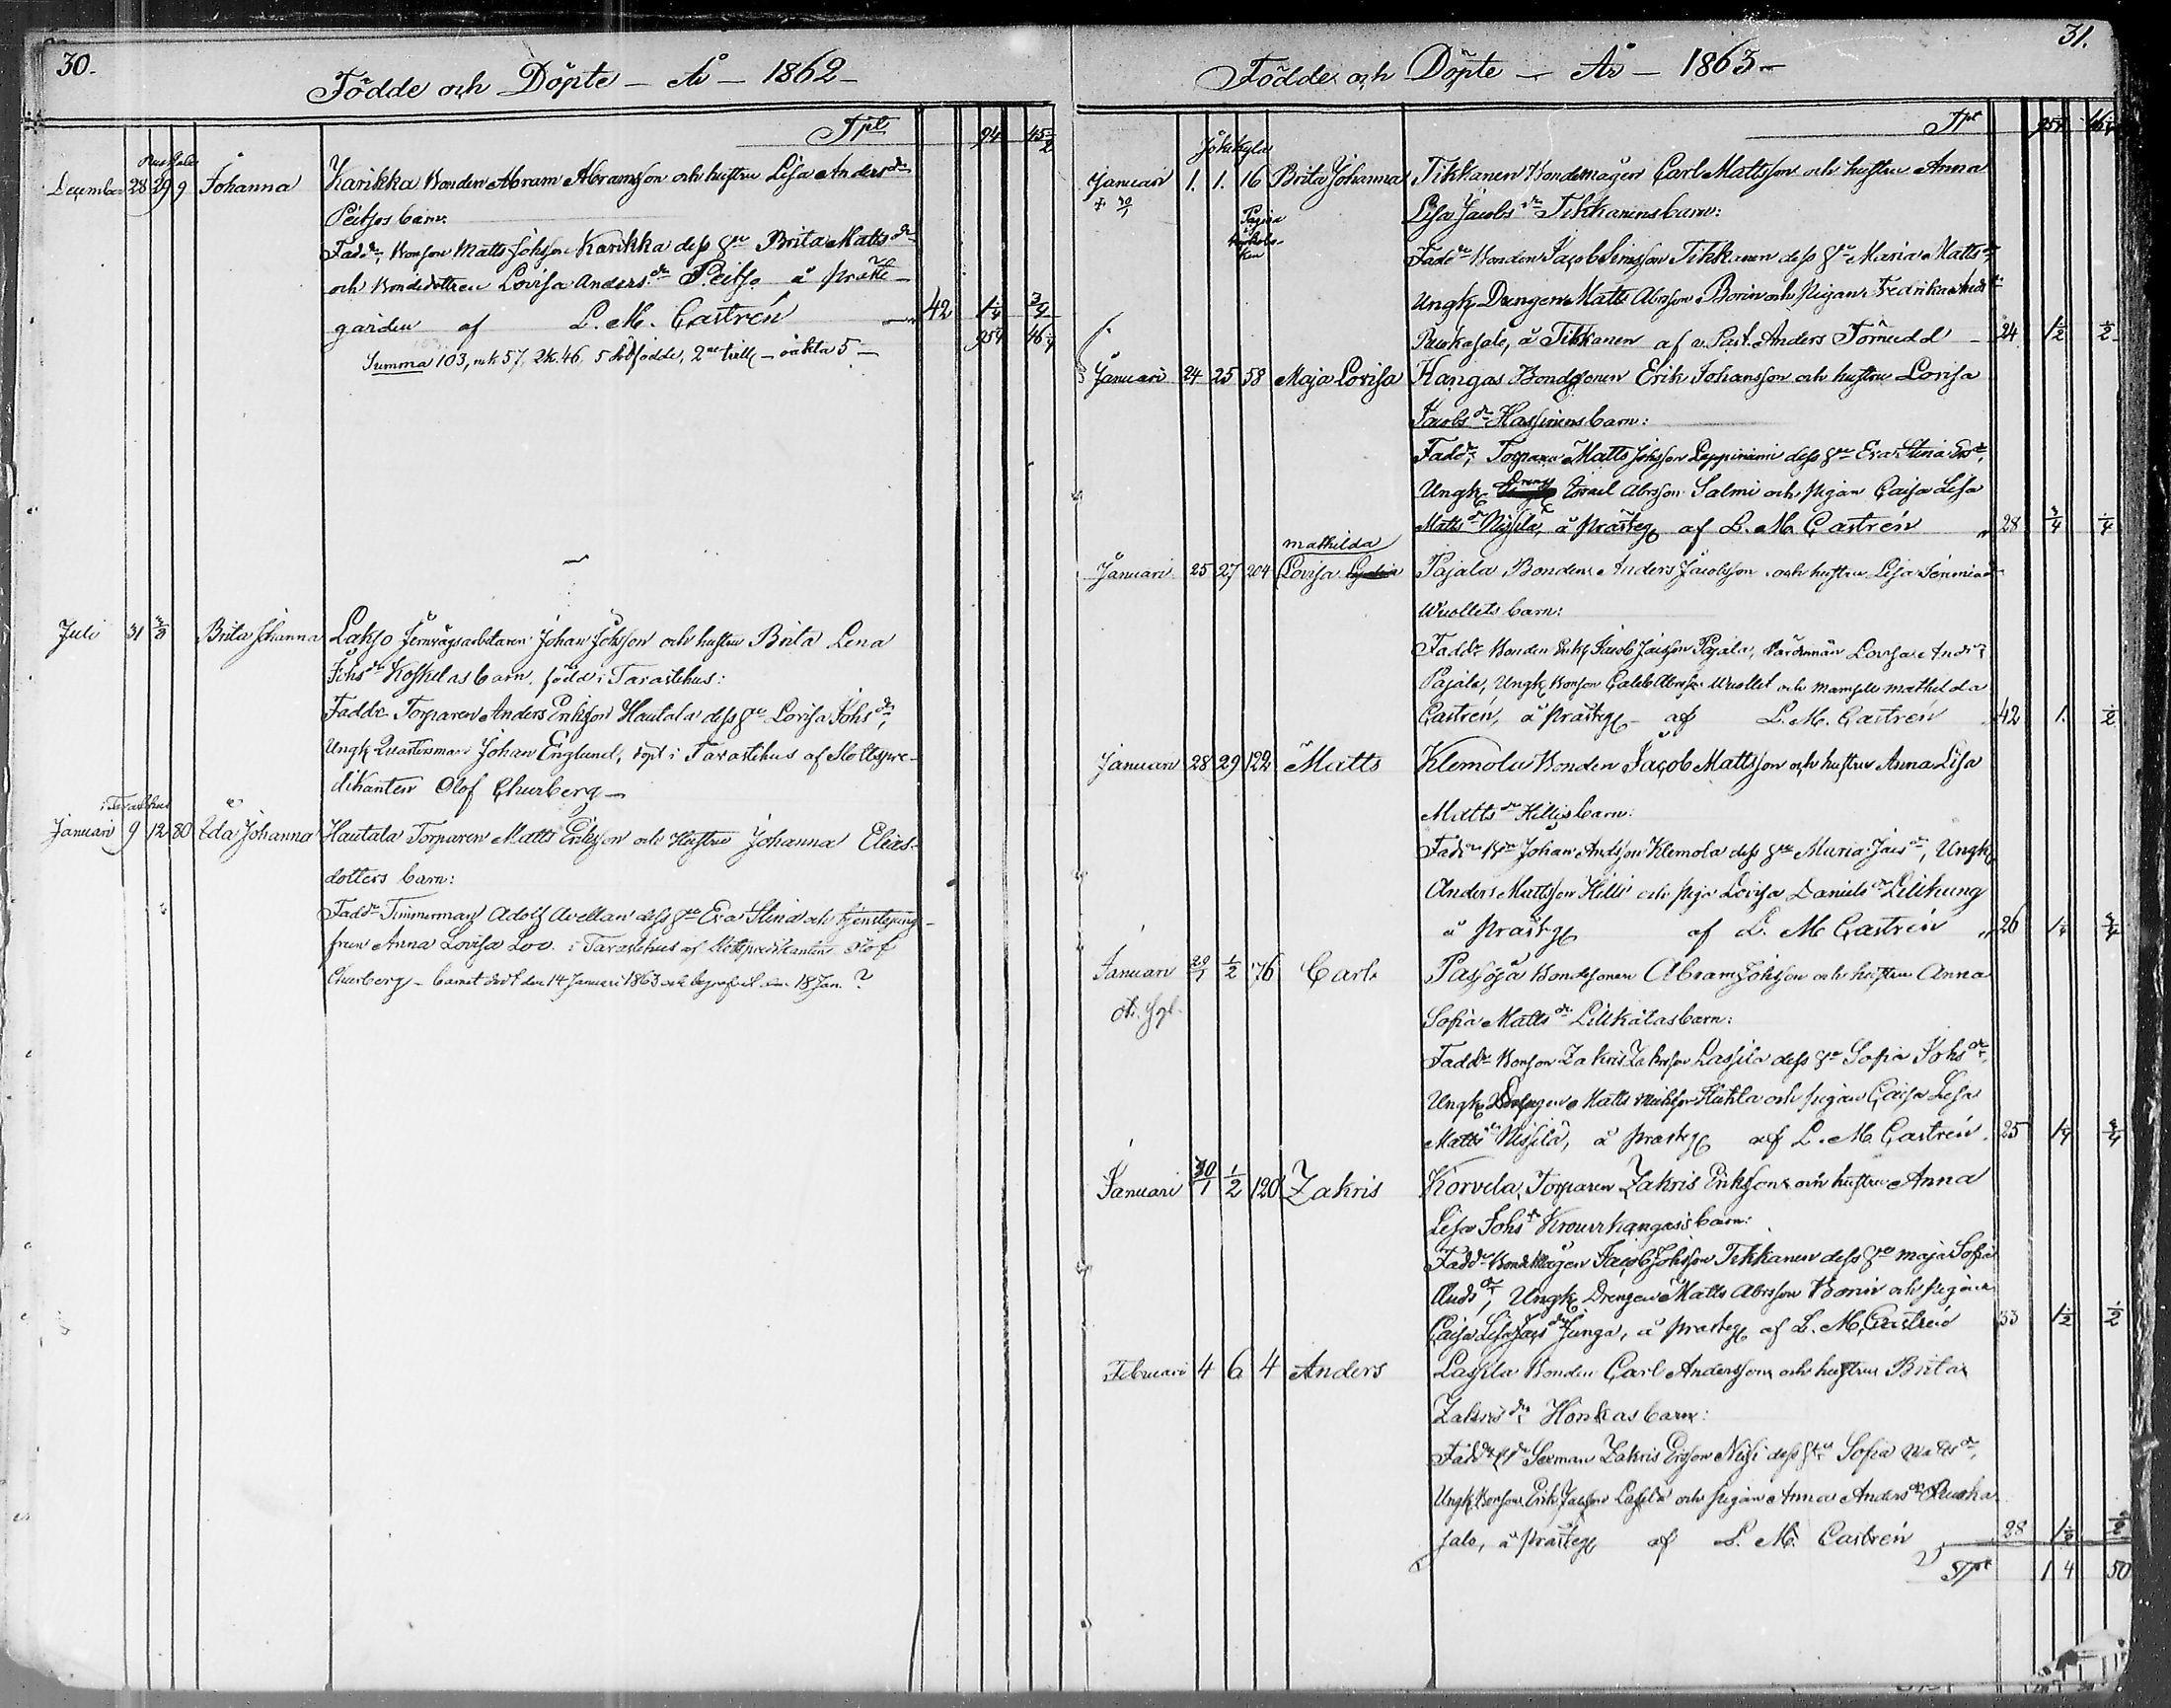 30.
Födde och Döpte – År – 1862 –
Tpt 94 45 1/2
Ruskalo
December 28 29 9 Johanna Karikka Bonden Abram Abramsson och hustru Lisa Andersdr
Peitsos barn:
Faddr, Bonson Matts Johsson Karikka dess hu Brita Mattsdr
och Bondedottren Lovisa Andersdr Peitso å präst-
gården af L. M. Castrén 42 1/4 3/4
Summa 103, mk 57, 2k. 46, 5 dödfödde, 2ne tvill – oäkta 5 – 95 1/4 46 1/4
Juli 31 3/8 Brita Johanna Lakso Jernvägsarbetaren Johan Johsson och hustru Brita Lena
Johsdr Koskelas barn, född i Tavastehus:
Faddr Torparen Anders Eriksson Hautala dess hu Lovisa Johsdr,
Ungk Johan Englund, döpt i Tavastehus af Slottspre-
dikanten Olof Churberg –
i Tavastehus
Januari 9 12 80 Ida Johanna Hautala Torparen Matts Eriksson och Hustru Johanna Elias-
dotters barn:
Faddr Timmerman Adolf Avellan dess hu Eva Stina och tjenstejung-
frun Anna Lovisa Loo. i Tavastehus af Slottspredikanten Olof
Churberg – barnet dödt den 14 Januari 1863 och begrafvet den 18 Jan. ?
31.
Födde och Döpte – År – 1863 –
Tpt
Jökekylä
Januari 1. 1. 16 Brita Johanna Tikkanen Bondemågen Carl Mattsson och hustru Anna
+ 30/1 Lisa Jacobsdr Tikkanens barn:
Faddr Bonden Jacob Simsson Tikkanen dess hu Maria Mattsdr
Ungk Drengen Matts Abrsson Borin och pigan Fredrika Andrsdr
Ruskasalo, å Tikkanen af v. Past. Anders Törnudd – 24 1 1/2 1/2
Januari 24 25 58 Maja Lovisa Hangas Bondsonen Erik Johansson och hustru Lovisa
Jacobsdr Hassinens barn:
Faddr, Torparen Matts Johsson Leppiniemi dess hu Eva Stina Ersdr,
Ungk Israel Abrsson Salmi och pigan Caisa Lisa
Mattsdr Nissilä, å prästeg af L. M. Castrén 28 3/4 1/4
mathilda
Januari 25 27 204 Lovisa Pajala Bonden Anders Jacobsson och hustru Lisa
Wuollets barn:
Faddr Bonden Enkl Jacob Jacsson Pajala, Lovisa Andrsdr
Pajala, Ungk Bonson Caleb Abrsson Wuollet och mamsell mathilda
Castrén, å prästeg af L. M. Castrén 42 1. 1/2
Januari 28 29 122 Matts Klemola Bonden Jacob Mattsson och hustru Anna Lisa
Mattsdr Hillis barn:
Faddr Bdn Johan Andsson Klemola dess hu Maria Jacsdr, Ungk
Anders Mattsson Hilli och piga Lovisa Danielsdr Lillkung
å prästg af L. M Castrén 26 1/4 3/4
Januari 29/1 1/2 76 Carl Passoja Bondesonen Abram Johsson och hustru Anna
Sofia Mattsdr Lillkålas barn:
Faddr Bonson Zakris Zakrsson Lassila dess hu Sofia Johsdr,
Ungk Drengen Matts Huhla och pigan Caisa Lisa
Mattsdr Nissilä, å prästeg af L. M. Castrén 25 1/4 3/4
Januari 30/1 1/2 120 Zakris Korvela, Torparen Zakris Eriksson och hustru Anna
Lisa Johsdr Krouvrkangasis barn:
Faddr Bondemågen Jacob Johsson Tikkanen dess hu maja Sofia
Andsdr, Ungk Drengen Matts Abrsson Borin och pigan
Caisa Lisa Jacsdr Junga, å prästeg af L. M. Castrén 33 1 1/2 1/2
Februari 4 6 4 Anders Lassila Bonden Carl Andersson och hustru Brita
Zakrisdr Honkas barn:
Faddr, Sexman Zakris Ersson Nissi dess hu Sofia Mattsdr,
Ungk Bonson Erik Jacsson Lassila och pigan Anna Andersdr Ruska-
salo, å prästeg af L. M. Castrén 28 1 1/2 1/2
Tpt 14 50